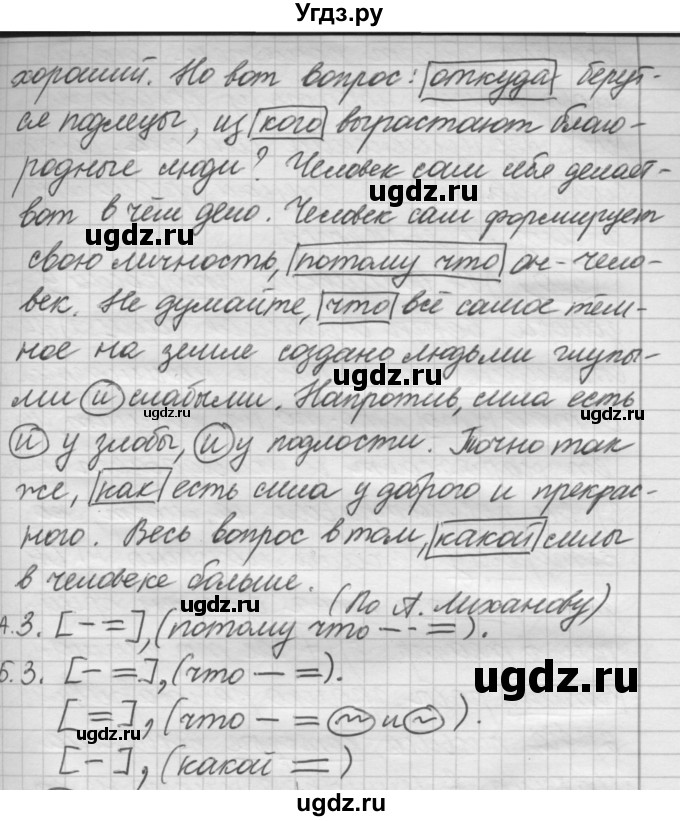 Угдз.ру
хороший. Но вот вопрос: откуда берут-
ся подлецы, из кого вырастают благо-
родные люди? Человек сам себя делает-
ugdz.ru
ugdz.ru
вот в чём дело. Человек сам формирует
ugdz.ru
свою личность, потому что он - чело-
век. Не думайте, что всё самое тём-
ное на земле создано людьми глупы-
ugdz.ru
ми и слабыми. Напротив, сила есть
ugdz.ru
и у злобы, и у подлости. Точно так
же, как есть сила у доброго и прекрас-
ugdz.ru
ного. Весь вопрос в том, какой силы
в человеке больше.
(По А. Лиханову)
ugdz.ru
А.3. [- =], (потому что - - =).
Б.3. [- =], (что - =).
ugdz.ru
[=], (что - = ~ и ~).
ugdz.ru
[-], (какой =)
ugdz.ru